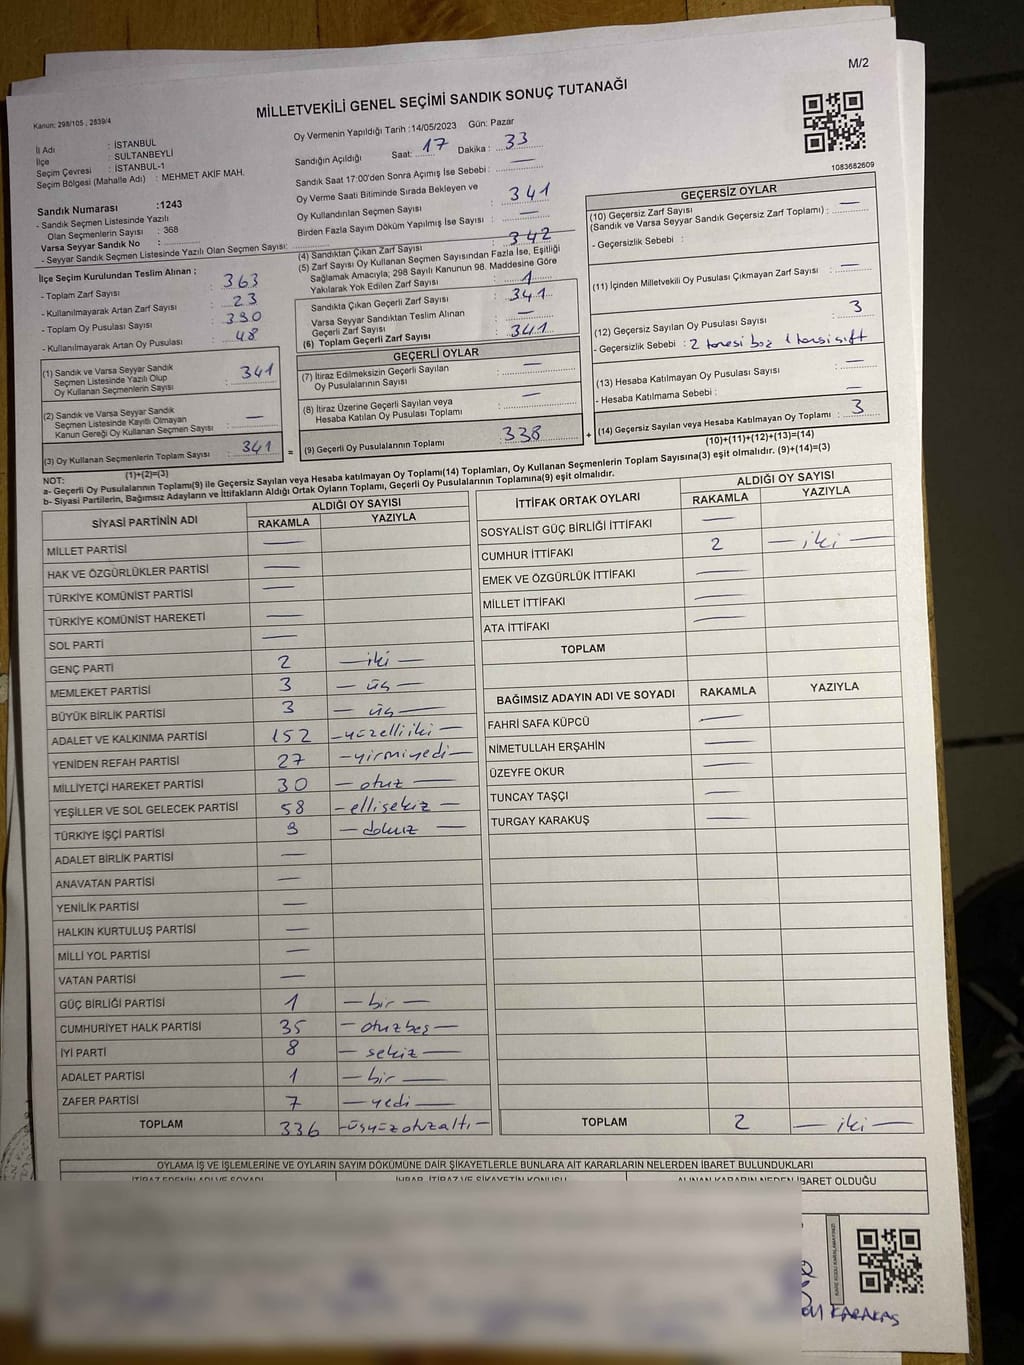 M/2
MİLLETVEKİLİ GENEL SEÇİMİ SANDIK SONUÇ TUTANAĞI
Kanun: 298/105 , 2839/4
İl Adı : İSTANBUL
İlçe : SULTANBEYLİ
Seçim Çevresi : İSTANBUL-1
Seçim Bölgesi (Mahalle Adı) : MEHMET AKİF MAH.
Sandık Numarası :1243
- Sandık Seçmen Listesinde Yazılı
Olan Seçmenlerin Sayısı : 368
Varsa Seyyar Sandık No :
- Seyyar Sandık Seçmen Listesinde Yazılı Olan Seçmen Sayısı:
Oy Vermenin Yapıldığı Tarih :14/05/2023 Gün: Pazar
Sandığın Açıldığı Saat: 17 Dakika : 33
Sandık Saat 17:00'den Sonra Açımış İse Sebebi : —
Oy Verme Saati Bitiminde Sırada Bekleyen ve
Oy Kullandırılan Seçmen Sayısı : 341
Birden Fazla Sayım Döküm Yapılmış İse Sayısı : —
1083682609
İlçe Seçim Kurulundan Teslim Alınan ;
- Toplam Zarf Sayısı : 363
- Kullanılmayarak Artan Zarf Sayısı : 23
- Toplam Oy Pusulası Sayısı : 390
- Kullanılmayarak Artan Oy Pusulası : 48
(1) Sandık ve Varsa Seyyar Sandık
Seçmen Listesinde Yazılı Olup
Oy Kullanan Seçmenlerin Sayısı : 341
(2) Sandık ve Varsa Seyyar Sandık
Seçmen Listesinde Kayıtlı Olmayan
Kanun Gereği Oy Kullanan Seçmen Sayısı : —
(3) Oy Kullanan Seçmenlerin Toplam Sayısı : 341
(1)+(2)=(3)
(4) Sandıktan Çıkan Zarf Sayısı : 342
(5) Zarf Sayısı Oy Kullanan Seçmen Sayısından Fazla İse, Eşitliği
Sağlamak Amacıyla; 298 Sayılı Kanunun 98. Maddesine Göre
Yakılarak Yok Edilen Zarf Sayısı : 1
Sandıkta Çıkan Geçerli Zarf Sayısı : 341
Varsa Seyyar Sandıktan Teslim Alınan
Geçerli Zarf Sayısı : —
(6) Toplam Geçerli Zarf Sayısı : 341
GEÇERLİ OYLAR
(7) İtiraz Edilmeksizin Geçerli Sayılan
Oy Pusulalarının Sayısı : —
(8) İtiraz Üzerine Geçerli Sayılan veya
Hesaba Katılan Oy Pusulası Toplamı : —
= (9) Geçerli Oy Pusulalarının Toplamı : 338 +
GEÇERSİZ OYLAR
(10) Geçersiz Zarf Sayısı
(Sandık ve Varsa Seyyar Sandık Geçersiz Zarf Toplamı) : —
- Geçersizlik Sebebi :
(11) İçinden Milletvekili Oy Pusulası Çıkmayan Zarf Sayısı : —
(12) Geçersiz Sayılan Oy Pusulası Sayısı : 3
- Geçersizlik Sebebi : 2 tanesi boş 1 tanesi çift
(13) Hesaba Katılmayan Oy Pusulası Sayısı : —
- Hesaba Katılmama Sebebi : —
(14) Geçersiz Sayılan veya Hesaba Katılmayan Oy Toplamı : 3
(10)+(11)+(12)+(13)=(14)
NOT:
a- Geçerli Oy Pusulalarının Toplamı(9) ile Geçersiz Sayılan veya Hesaba katılmayan Oy Toplamı(14) Toplamları, Oy Kullanan Seçmenlerin Toplam Sayısına(3) eşit olmalıdır. (9)+(14)=(3)
b- Siyasi Partilerin, Bağımsız Adayların ve İttifakların Aldığı Ortak Oyların Toplamı, Geçerli Oy Pusulalarının Toplamına(9) eşit olmalıdır.
SİYASİ PARTİNİN ADI ALDIĞI OY SAYISI
RAKAMLA YAZIYLA
MİLLET PARTİSİ —
HAK VE ÖZGÜRLÜKLER PARTİSİ —
TÜRKİYE KOMÜNİST PARTİSİ —
TÜRKİYE KOMÜNİST HAREKETİ —
SOL PARTİ —
GENÇ PARTİ 2 — iki —
MEMLEKET PARTİSİ 3 — üç —
BÜYÜK BİRLİK PARTİSİ 3 — üç —
ADALET VE KALKINMA PARTİSİ 152 — yüzelliiki —
YENİDEN REFAH PARTİSİ 27 — yirmiyedi —
MİLLİYETÇİ HAREKET PARTİSİ 30 — otuz —
YEŞİLLER VE SOL GELECEK PARTİSİ 58 — ellisekiz —
TÜRKİYE İŞÇİ PARTİSİ 9 — dokuz —
ADALET BİRLİK PARTİSİ —
ANAVATAN PARTİSİ —
YENİLİK PARTİSİ —
HALKIN KURTULUŞ PARTİSİ —
MİLLİ YOL PARTİSİ —
VATAN PARTİSİ —
GÜÇ BİRLİĞİ PARTİSİ 1 — bir —
CUMHURİYET HALK PARTİSİ 35 — otuzbeş —
İYİ PARTİ 8 — sekiz —
ADALET PARTİSİ 1 — bir —
ZAFER PARTİSİ 7 — yedi —
TOPLAM 336 — üçyüzotuzaltı —
İTTİFAK ORTAK OYLARI ALDIĞI OY SAYISI
RAKAMLA YAZIYLA
SOSYALİST GÜÇ BİRLİĞİ İTTİFAKI —
CUMHUR İTTİFAKI 2 — iki —
EMEK VE ÖZGÜRLÜK İTTİFAKI —
MİLLET İTTİFAKI —
ATA İTTİFAKI —
TOPLAM
BAĞIMSIZ ADAYIN ADI VE SOYADI RAKAMLA YAZIYLA
FAHRİ SAFA KÜPCÜ —
NİMETULLAH ERŞAHİN —
ÜZEYFE OKUR —
TUNCAY TAŞÇI —
TURGAY KARAKUŞ —
TOPLAM 2 — iki —
OYLAMA İŞ VE İŞLEMLERİNE VE OYLARIN SAYIM DÖKÜMÜNE DAİR ŞİKAYETLERLE BUNLARA AİT KARARLARIN NELERDEN İBARET BULUNDUKLARI
İTİRAZ EDENİN ADI VE SOYADI İHBAR, İTİRAZ VE ŞİKAYETİN KONUSU ALINAN KARARIN NEDEN İBARET OLDUĞU
KARAKAŞ